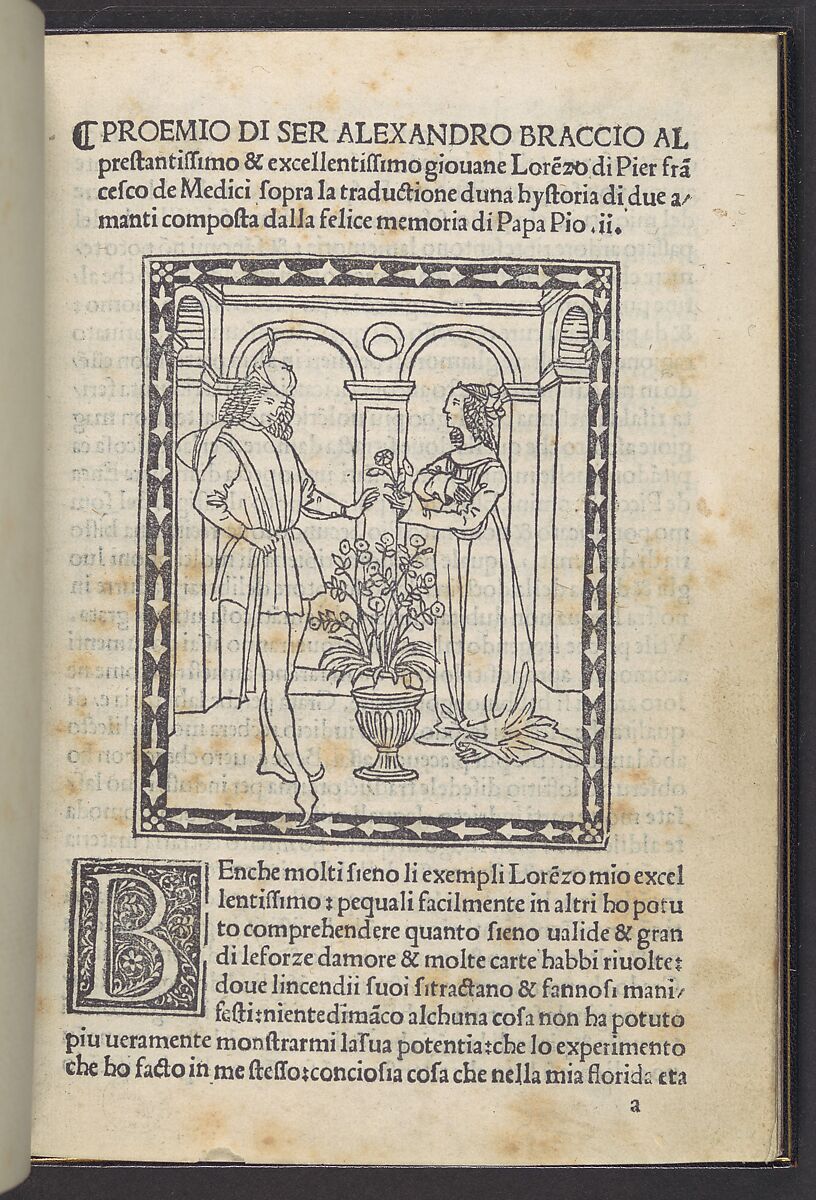 ⁋PROEMIO DI SER ALEXANDRO BRACCIO AL
prestantissimo & excellentissimo giouane Lorēzo di Pier frā
cesco de Medici sopra la traductione duna hystoria di due a/
manti composta dalla felice memoria di Papa Pio .ii.
BEnche molti sieno li exempli Lorēzo mio excel
lentissimo : pequali facilmente in altri ho potu
to comprehendere quanto sieno ualide & gran
di leforze damore & molte carte habbi riuolte:
doue lincendii suoi sitractano & fannosi mani/
festi:niente dimāco alchuna cosa non ha potuto
piu ueramente monstrarmi lasua potentia:che lo experimento
che ho facto in me stesso:conciosia cosa che nella mia florida eta
a